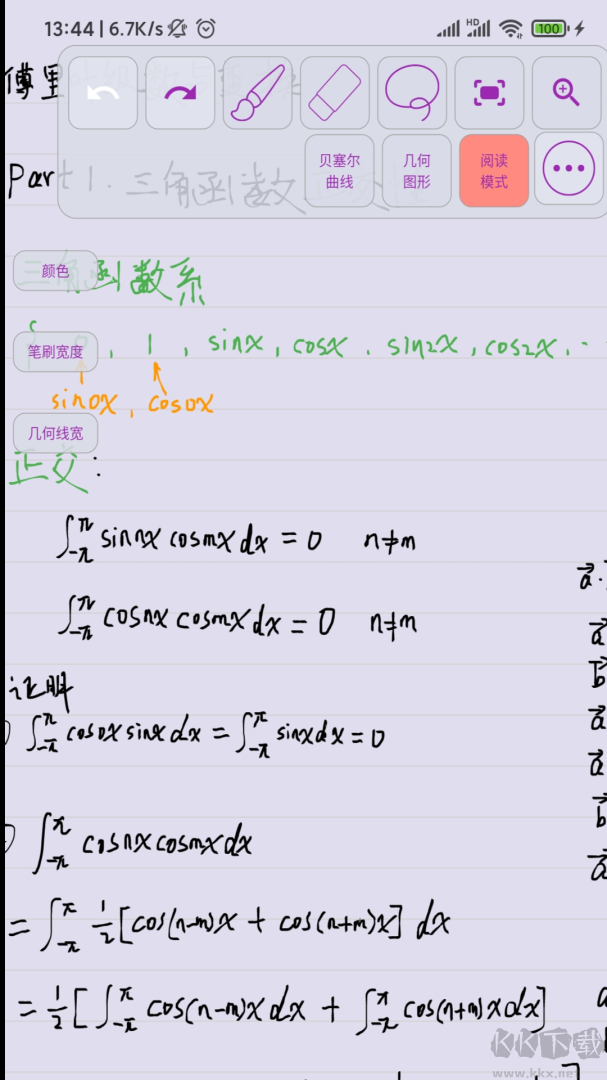 13:44 | 6.7K/s HD 100
傅里
贝塞尔曲线 几何图形 阅读模式
Part 1. 三角函数
颜色
三角函数系
笔刷宽度
0, 1, sinx, cosx, sin2x, cos2x, ..
sin0x, cos0x
几何线宽
正交:
∫_{-π}^{π} sin nx cos mx dx = 0 n≠m
∫_{-π}^{π} cos nx cos mx dx = 0 n≠m
证明
∫_{-π}^{π} cos0x sinx dx = ∫_{-π}^{π} sinx dx = 0
∫_{-π}^{π} cos nx cos mx dx
= ∫_{-π}^{π} 1/2 [cos(n-m)x + cos(n+m)x] dx
= 1/2 [∫_{-π}^{π} cos(n-m)x dx + ∫_{-π}^{π} cos(n+m)x dx]
a⃗·
a⃗
b⃗
a⃗
a⃗
b⃗
a⃗
KK下载
www.kkx.net